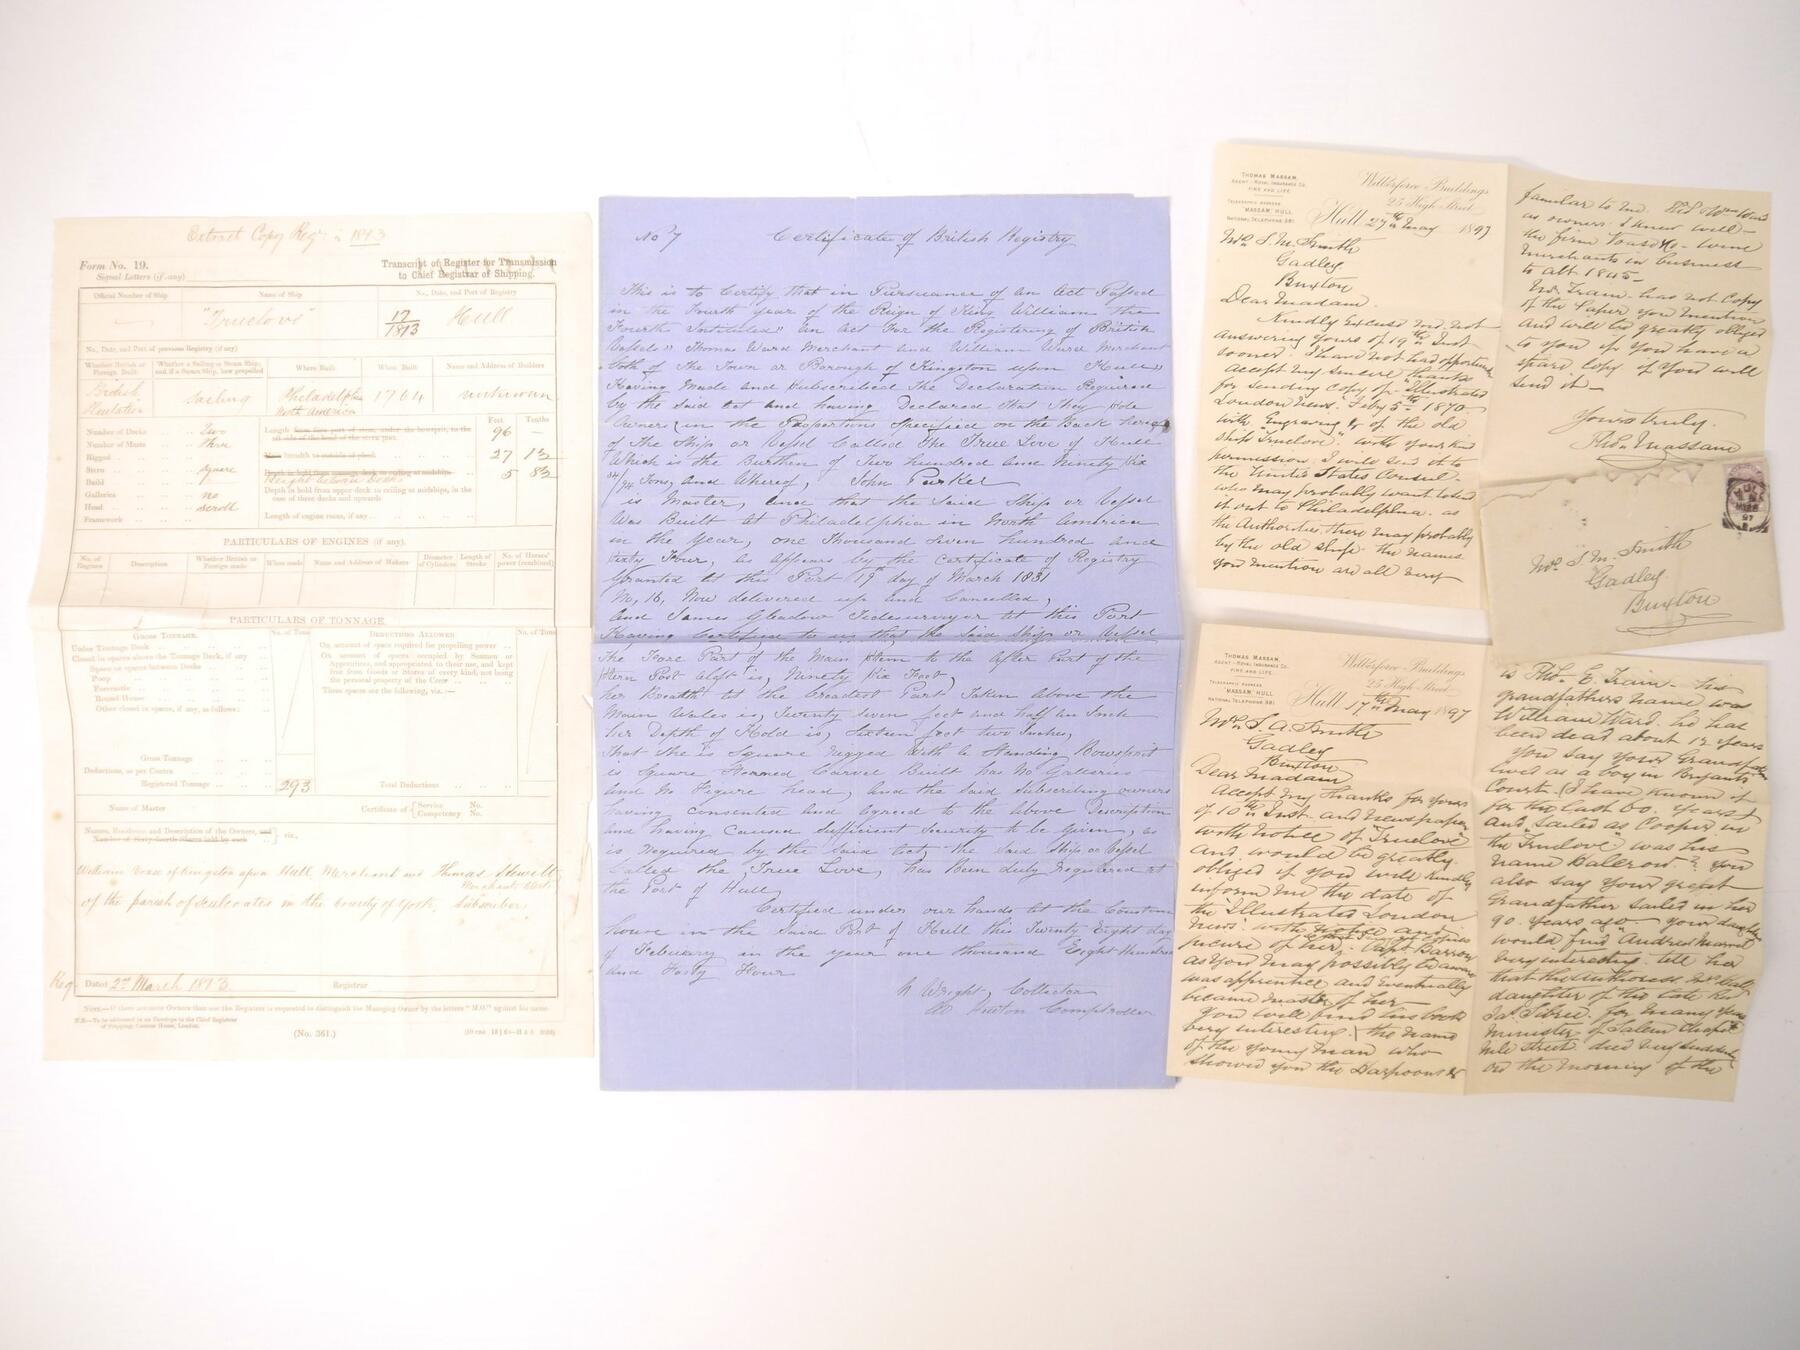 Extract Copy Reg 1813
Form No. 19.
Signal Letters (if any)
Transcript of Register for Transmission
to Chief Registrar of Shipping.
Official Number of Ship
Name of Ship
No., Date, and Port of Registry
"Truelove"
17/1813
Hull
No., Date, and Port of previous Registry (if any)
Whether British or Foreign Built.
Whether a Sailing or Steam Ship, and if a Steam Ship, how propelled
Where Built
When Built
Name and Address of Builders
British Plantation
Sailing
Philadelphia North America
1764
unknown
Feet Tenths
Number of Decks Two
Number of Masts three
Rigged
Stern square
Build
Galleries no
Head scroll
Framework
Length from fore part of stem, under the bowsprit, to the aft side of the head of the stern post. 96 –
Main breadth to outside of plank 27 1½
Depth in hold from tonnage deck to ceiling at midships 5 8½
Height between Decks
Depth in hold from upper deck to ceiling at midships, in the case of three decks and upwards
Length of engine room, if any
PARTICULARS OF ENGINES (if any).
No. of Engines
Description
Whether British or Foreign made
When made
Name and Address of Makers
Diameter of Cylinders
Length of Stroke
No. of Horses' power (combined)
PARTICULARS OF TONNAGE.
GROSS TONNAGE.
No. of Tons
DEDUCTIONS ALLOWED
No. of Tons
Under Tonnage Deck
Closed in spaces above the Tonnage Deck, if any
Space or spaces between Decks
Poop
Forecastle
Round House
Other closed in spaces, if any, as follows:
Gross Tonnage
Deductions, as per Contra
Registered Tonnage 293
On account of space required for propelling power
On account of spaces occupied by Seamen or Apprentices, and appropriated to their use, and kept free from Goods or Stores of every kind, not being the personal property of the Crew
These spaces are the following, viz.:—
Total Deductions
Name of Master
Certificate of Service No. Competency No.
Names, Residence, and Description of the Owners, and
Number of Sixty-fourth Shares held by each viz.,
William Voase of Kingston upon Hull, Merchant and Thomas Shewill
Merchants Clerk
of the parish of Sculcoates in the County of York, Subscriber
Reg Dated 2nd March 1813
Registrar
NOTE.—If there are more Owners than one the Registrar is requested to distinguish the Managing Owner by the letters "M.O." against his name.
N.B.—To be addressed in an Envelope to the Chief Registrar of Shipping, Custom House, London.
(No. 361.)
No 7 Certificate of British Registry
This is to Certify that in Pursuance of an Act Passed
in the Fourth year of the Reign of King William the
Fourth Intituled "An Act For the Registering of British
Vessels" Thomas Ward Merchant and William Ward Merchant
Both of The Town or Borough of Kingston upon Hull
Having Made and Subscribed The Declaration Required
by the Said Act and having Declared That They are
Owners in the Proportions Specified on the Back hereof
of The Ship or Vessel Called The True Love of Hull
Which is the Burthen of Two hundred and Ninety Six
Tons, and Whereof, John Parker
is Master, and that the Said Ship or Vessel
Was Built at Philadelphia in North America
in the Year, one Thousand Seven hundred and
Sixty Four, as appears by the Certificate of Registry
Granted at this Port 19th day of March 1831
No, 16, Now delivered up and Cancelled,
And James Gleadow Tidesurveyor at this Port
Having Certified to us, that the Said Ship or Vessel
The Fore Part of the Main Stem to the After Part of the
Stern Post Aloft is, Ninety Six Feet,
her Breadth at the Broadest Part Taken above the
Main Wales is, Twenty Seven feet and half an Inch
her Depth of Hold is, Sixteen feet two Inches,
That She is Square Rigged With a Standing Bowsprit
is Square Sterned Carvel Built has No Galleries
and No Figure head, and the Said Subscribing owners
having consented and agreed to the above Description
and having Caused Sufficient Security to be Given, as
is Required by the Said Act, the Said Ship or Vessel
Called the, True Love, has Been Duly Registered at
the Port of Hull,
Certified under our hands at the Custom
house in the Said Port of Hull this Twenty Eight day
of Febuary in the year one thousand Eight Hundred
and Forty Four
Wright, Collector
Comptroller
THOMAS MASSAM,
AGENT - ROYAL INSURANCE CO.
FIRE AND LIFE.
TELEGRAPHIC ADDRESS
"MASSAM," HULL.
NATIONAL TELEPHONE 381.
Wilberforce Buildings,
25 High Street
Hull 27th May 1897
Mrs S. M. Smith
Gadley
Buxton
Dear Madam.
Kindly Excuse me not
answering yours of 19th Inst
sooner. I have not had opportunity
accept my sincere thanks
for sending copy of "Illustrated
London News" Feby 5th 1870
with Engraving & of the old
ship "Truelove". with your kind
permission, I will send it to
the United States Consul
who may probably want to send
it out to Philadelphia. as
the Authorities there may probably
by the old ship. the names
you mention are all very
familiar to me. Wm Ward
as owners. I knew well
the firm Voase & Co. wine
Merchants in business
to abt 1845
Mr Train. has not copy
of the Paper you mention
and will be greatly obliged
to you if you have a
spare copy if you will
send it
Yours truly.
Thos Massam
HULL
97
Mrs S. M. Smith
Gadley.
Buxton
THOMAS MASSAM,
AGENT - ROYAL INSURANCE CO.
FIRE AND LIFE.
TELEGRAPHIC ADDRESS
"MASSAM," HULL.
NATIONAL TELEPHONE 381.
Wilberforce Buildings,
25 High Street
Hull 17th May 1897
Mrs S. A. Smith
Gadley
Buxton
Dear Madam
Accept my thanks for yours
of 10th Inst. and newspaper
with notice of "Truelove"
and would be greatly
obliged if you will kindly
inform me the date of
the "Illustrated London
News" with notice and
picture of her. Capt Barron
as you may possibly be aware
was apprentice and Eventually
became master of her
You will find his book
very interesting. the name
of the young man who
showed you the Harpoons &c
is Thos. E. Train – his
grandfathers name was
William Ward. he has
been dead about 12 years
You say your Grandfather
lived as a boy in Bryants
Court. (I have known it
for the last 60. years)
and sailed as Cooper in
the "Truelove" was his
name Ballron? You
also say your great
Grandfather sailed in her
90. years ago – your daughter
would find "Andrew Marvel"
very interesting. tell her
that the authoress.
daughter of the late Rev
Jas. Sibree. for many years
minister of Salem Chapel
street. died very suddenly
on the morning of the